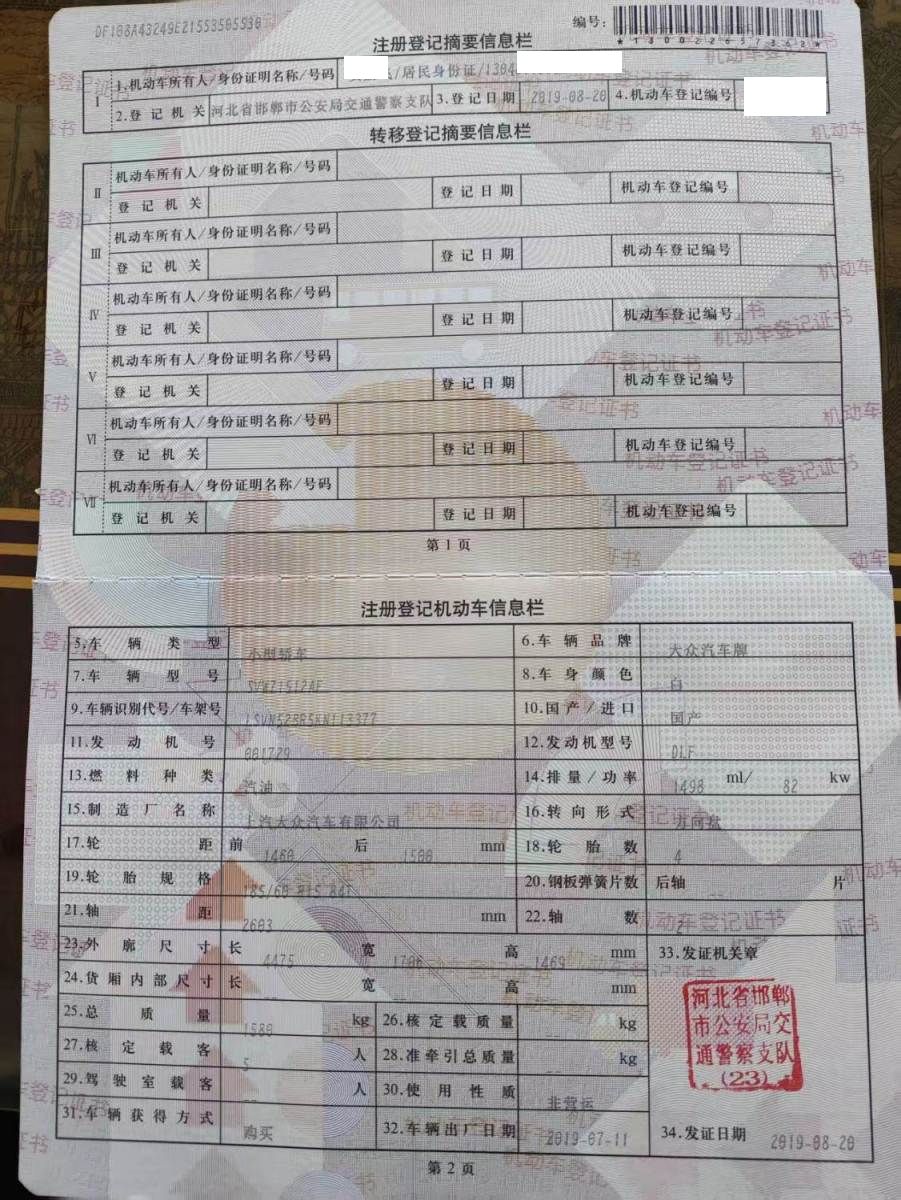 DF108A43249E21553505530
编号：
*130022657362*
注册登记摘要信息栏
I 1.机动车所有人/身份证明名称/号码 /居民身份证/1304
2.登记机关 河北省邯郸市公安局交通警察支队 3.登记日期 2019-08-20 4.机动车登记编号
转移登记摘要信息栏
II 机动车所有人/身份证明名称/号码
登记机关 登记日期 机动车登记编号
III 机动车所有人/身份证明名称/号码
登记机关 登记日期 机动车登记编号
IV 机动车所有人/身份证明名称/号码
登记机关 登记日期 机动车登记编号
V 机动车所有人/身份证明名称/号码
登记机关 登记日期 机动车登记编号
VI 机动车所有人/身份证明名称/号码
登记机关 登记日期 机动车登记编号
VII 机动车所有人/身份证明名称/号码
登记机关 登记日期 机动车登记编号
第1页
注册登记机动车信息栏
5.车辆类型 小型轿车 6.车辆品牌 大众汽车牌
7.车辆型号 SVW21512AF 8.车身颜色 白
9.车辆识别代号/车架号 LSVN528R5KN113377 10.国产/进口 国产
11.发动机号 081729 12.发动机型号 DLF
13.燃料种类 汽油 14.排量/功率 1498 ml/ 82 kw
15.制造厂名称 上汽大众汽车有限公司 16.转向形式 方向盘
17.轮距 前 1460 后 1500 mm 18.轮胎数 4
19.轮胎规格 185/60 R15 84T 20.钢板弹簧片数 后轴 片
21.轴距 2603 mm 22.轴数 2
23.外廓尺寸 长 4475 宽 1706 高 1469 mm 33.发证机关章
24.货厢内部尺寸 长 -- 宽 -- 高 -- mm
25.总质量 1580 kg 26.核定载质量 -- kg
27.核定载客 5 人 28.准牵引总质量 -- kg
29.驾驶室载客 -- 人 30.使用性质 非营运
31.车辆获得方式 购买 32.车辆出厂日期 2019-07-11 34.发证日期 2019-08-20
河北省邯郸
市公安局交
通警察支队
(23)
第2页